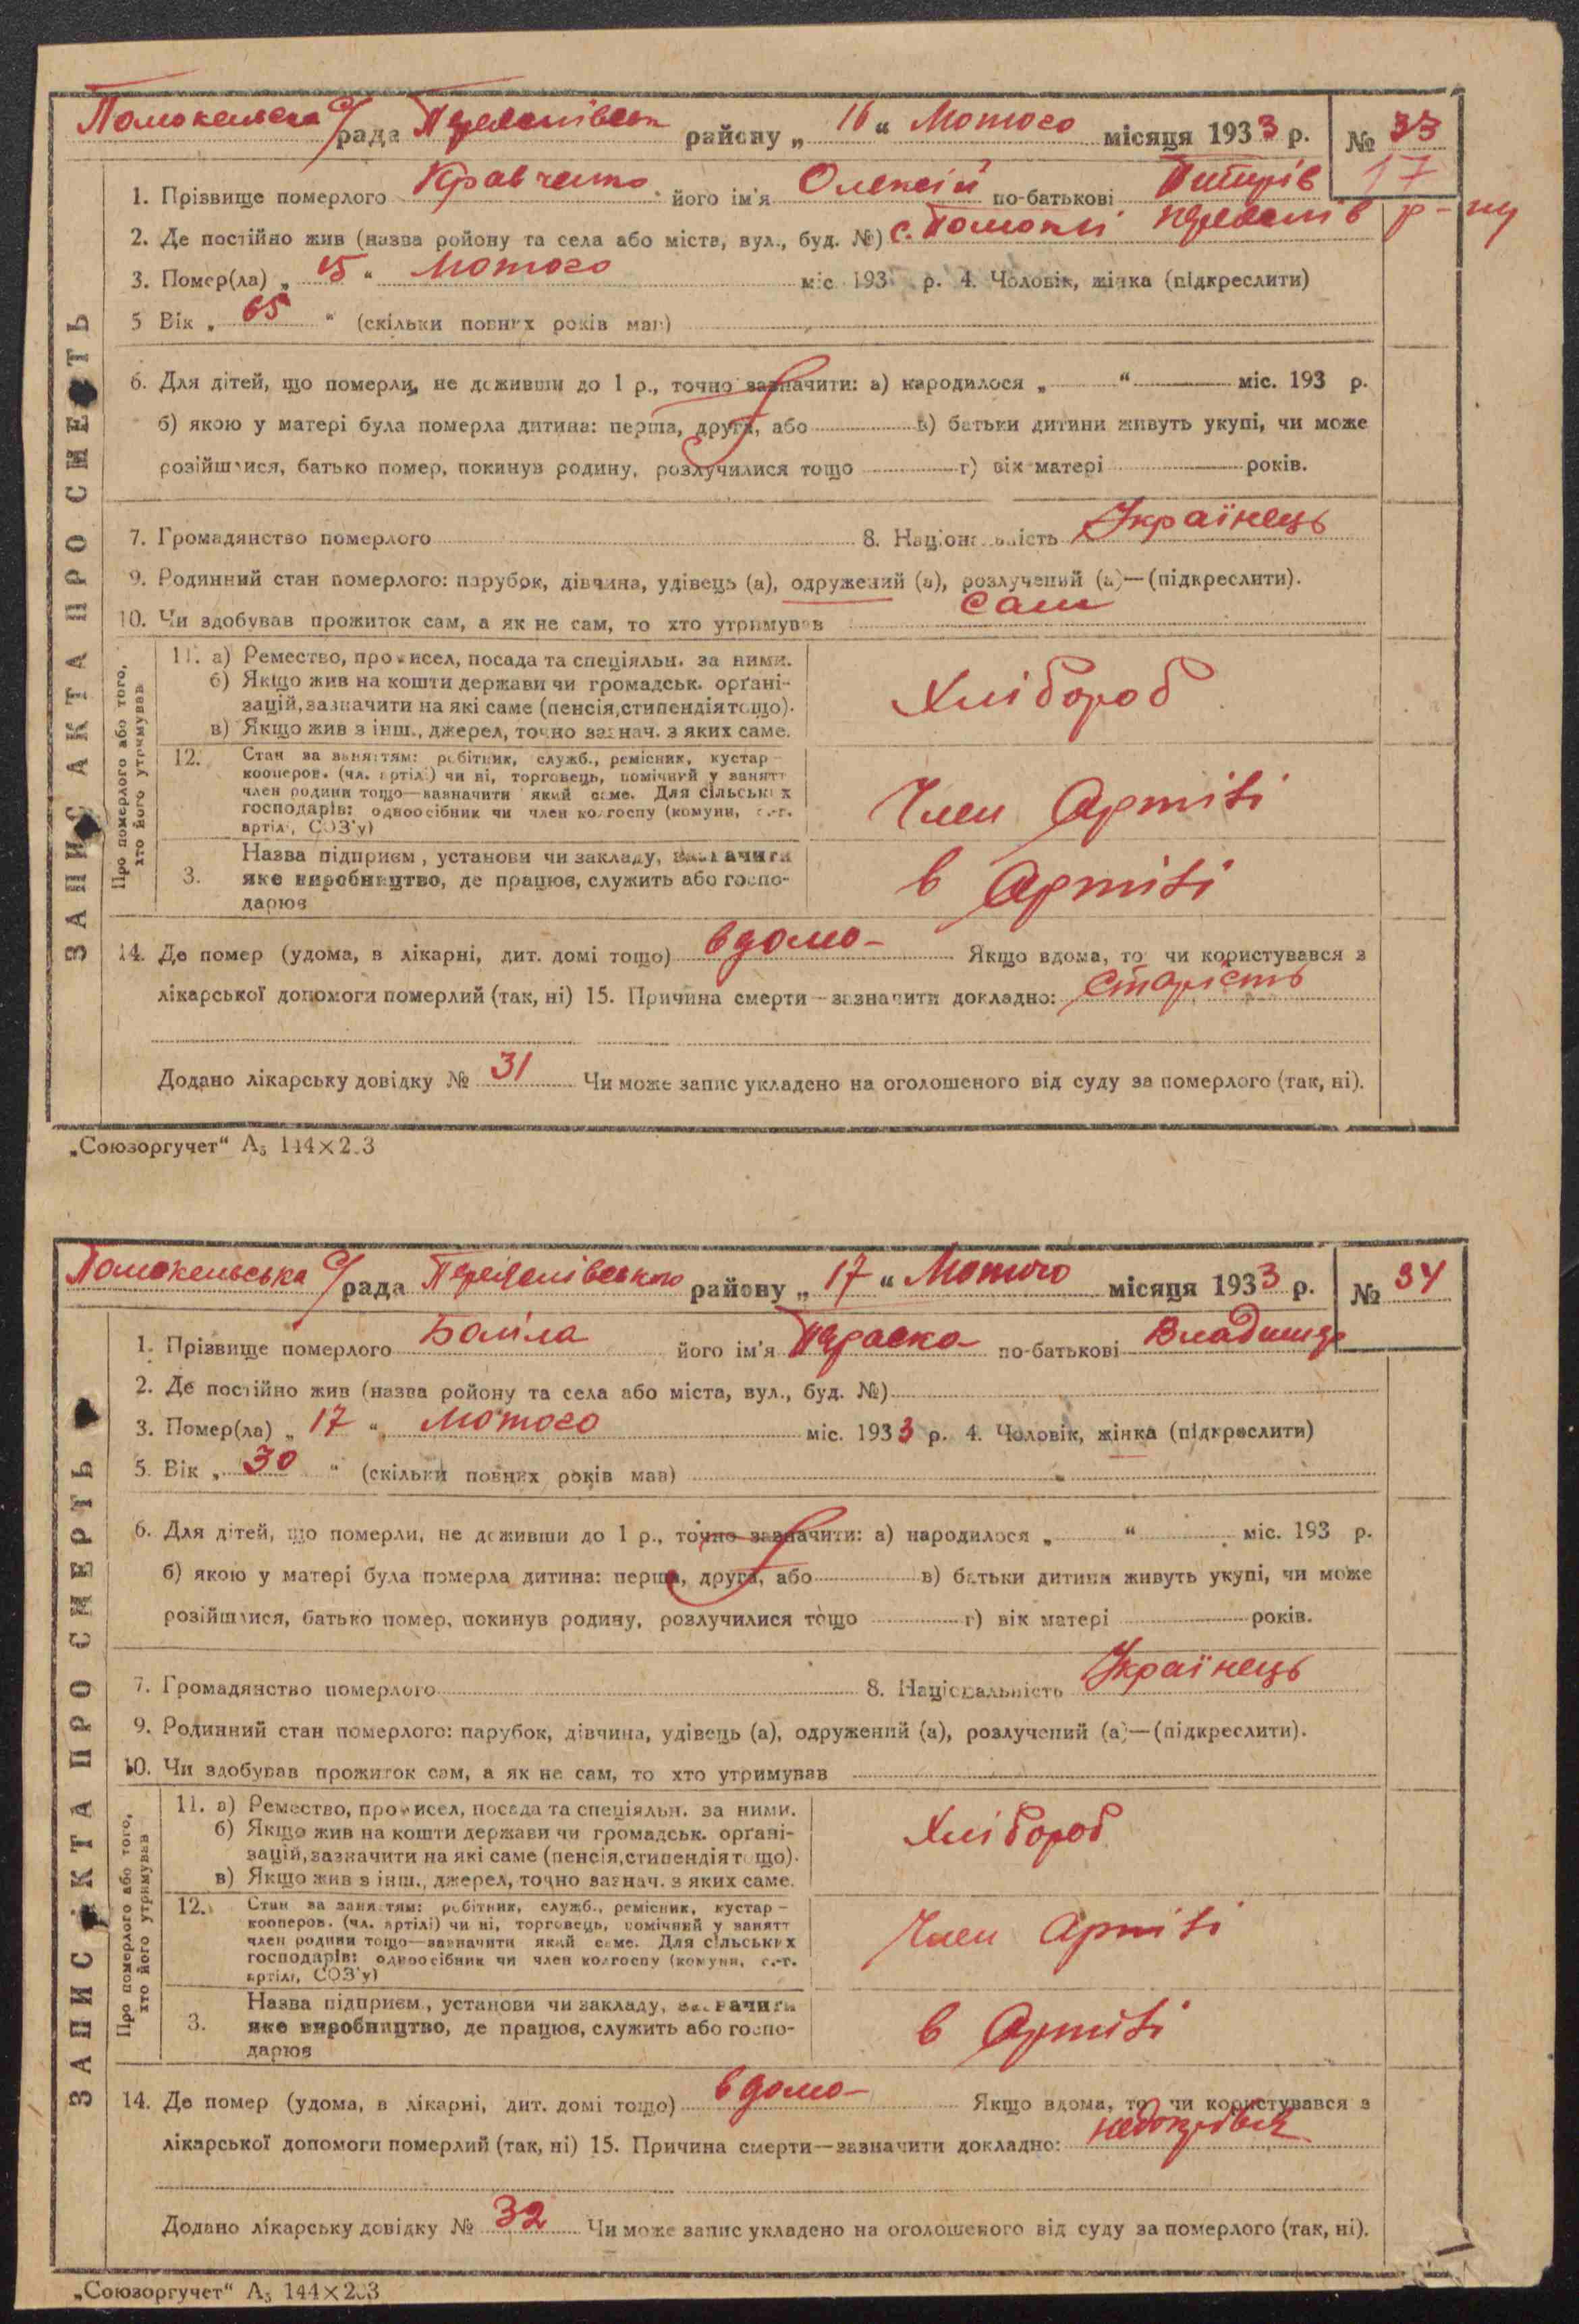 Помокельська с/рада Переяслівськ району „16“ Лютого місяця 1933 р. № 33
17
1. Прізвище померлого Кравченко його ім'я Олексій по-батькові
2. Де постійно жив (назва ройону та села або міста, вул., буд. №) с. Помоклі Переяслів р-ну
3. Помер(ла) „15“ Лютого міс 193 р. 4. Чоловік, жінка (підкреслити)
5 Вік „65“ (скільки повних років мав)
6. Для дітей, що померли, не доживши до 1 р., точно зазначити: а) народилося „ “ міс. 193 р.
б) якою у матері була померла дитина: перша, друга, або в) батьки дитини живуть укупі, чи може
розійшлися, батько помер, покинув родину, розлучилися тощо г) вік матері років.
7. Громадянство померлого 8. Національність Українець
9. Родинний стан померлого: парубок, дівчина, удівець (а), одружений (а), розлучений (а)—(підкреслити).
10. Чи здобував прожиток сам, а як не сам, то хто утримував сам
ЗАПИС АКТА ПРО СМЕРТЬ
Про померлого або того,
хто його утримував
11. а) Ремество, промисел, посада та спеціяльн. за ними.
б) Якщо жив на кошти держави чи громадськ. орґані-
зацій, зазначити на які саме (пенсія, стипендія тощо).
в) Якщо жив з інш., джерел, точно зазнач. з яких саме.
Хлібороб
12. Стан за заняттям: робітник, служб., ремісник, кустар –
кооперов. (чл. артілі) чи ні, торговець, помічний у занятт
член родини тощо—зазначити який саме. Для сільських
господарів: одноосібник чи член колгоспу (комуни, с.-г.
артілі, СОЗ'у)
Член Артілі
3. Назва підприєм., установи чи закладу, зазначити
яке виробництво, де працює, служить або госпо-
дарює
в Артілі
14. Де помер (удома, в лікарні, дит. домі тощо) вдома Якщо вдома, то чи користувався з
лікарської допомоги померлий (так, ні) 15. Причина смерти—зазначити докладно: старість
Додано лікарську довідку № 31 Чи може запис укладено на оголошеного від суду за померлого (так, ні).
„Союзоргучет“ А₅ 144×203
Помокельська с/рада Переяслівського району „17“ Лютого місяця 1933 р. № 34
1. Прізвище померлого його ім'я Параска по-батькові
2. Де постійно жив (назва ройону та села або міста, вул., буд. №)
3. Помер(ла) „17“ Лютого міс. 1933 р. 4. Чоловік, жінка (підкреслити)
5. Вік „30“ (скільки повних років мав)
6. Для дітей, що померли, не доживши до 1 р., точно зазначити: а) народилося „ “ міс. 193 р.
б) якою у матері була померла дитина: перша, друга, або в) батьки дитини живуть укупі, чи може
розійшлися, батько помер, покинув родину, розлучилися тощо г) вік матері років.
7. Громадянство померлого 8. Національність Українець
9. Родинний стан померлого: парубок, дівчина, удівець (а), одружений (а), розлучений (а)—(підкреслити).
10. Чи здобував прожиток сам, а як не сам, то хто утримував
ЗАПИС АКТА ПРО СМЕРТЬ
Про померлого або того,
хто його утримував
11. а) Ремество, промисел, посада та спеціяльн. за ними.
б) Якщо жив на кошти держави чи громадськ. орґані-
зацій, зазначити на які саме (пенсія, стипендія тощо).
в) Якщо жив з інш., джерел, точно зазнач. з яких саме.
Хлібороб
12. Стан за заняттям: робітник, служб., ремісник, кустар –
кооперов. (чл. артілі) чи ні, торговець, помічний у занятт
член родини тощо—зазначити який саме. Для сільських
господарів: одноосібник чи член колгоспу (комуни, с.-г.
артілі, СОЗ'у)
Член Артілі
3. Назва підприєм., установи чи закладу, зазначити
яке виробництво, де працює, служить або госпо-
дарює
в Артілі
14. Де помер (удома, в лікарні, дит. домі тощо) вдома Якщо вдома, то чи користувався з
лікарської допомоги померлий (так, ні) 15. Причина смерти—зазначити докладно:
Додано лікарську довідку № 32 Чи може запис укладено на оголошеного від суду за померлого (так, ні).
„Союзоргучет“ А₅ 144×203